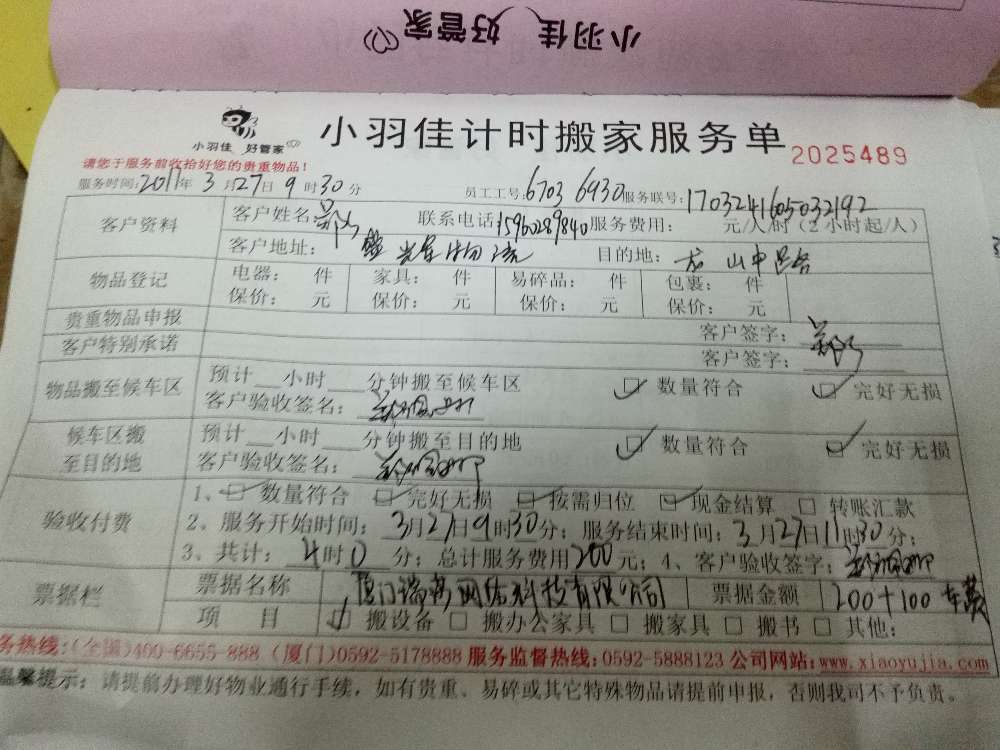 小羽佳 好管家
小羽佳 好管家
小羽佳计时搬家服务单
2025489
请您于服务前收拾好您的贵重物品!
服务时间:2017年3月27日9时30分 员工工号:6703 6930 服务联号:1703241605032192
客户资料 客户姓名:郑 联系电话15960289840 服务费用: 元/人/时(2小时起/人)
客户地址: 物流 目的地: 山中
物品登记 电器: 件 家具: 件 易碎品: 件 包裹: 件
保价: 元 保价: 元 保价: 元 保价: 元
贵重物品申报 客户签字:
客户特别承诺 客户签字:
物品搬至候车区 预计__小时___分钟搬至候车区 ☑ 数量符合 ☑ 完好无损
客户验收签名:
候车区搬至目的地 预计__小时___分钟搬至目的地 ☑ 数量符合 ☑ 完好无损
客户验收签名:
验收付费 1、☑ 数量符合 ☑ 完好无损 ☑ 按需归位 ☑ 现金结算 □ 转账汇款
2、服务开始时间:3月27日9时30分;服务结束时间:3月27日11时30分;
3、共计:4时0分;总计服务费用200元;4、客户验收签字:
票据栏 票据名称 厦门瑞 网络科技有限公司 票据金额 200+100车费
项 目 ☑ 搬设备 □ 搬办公家具 □ 搬家具 □ 搬书 □ 其他:
务热线:(全国)400-6655-888 (厦门)0592-5178888 服务监督热线:0592-5888123 公司网站:www.xiaoyujia.com
温馨提示:请提前办理好物业通行手续,如有贵重、易碎或其它特殊物品请提前申报,否则我司不予负责。